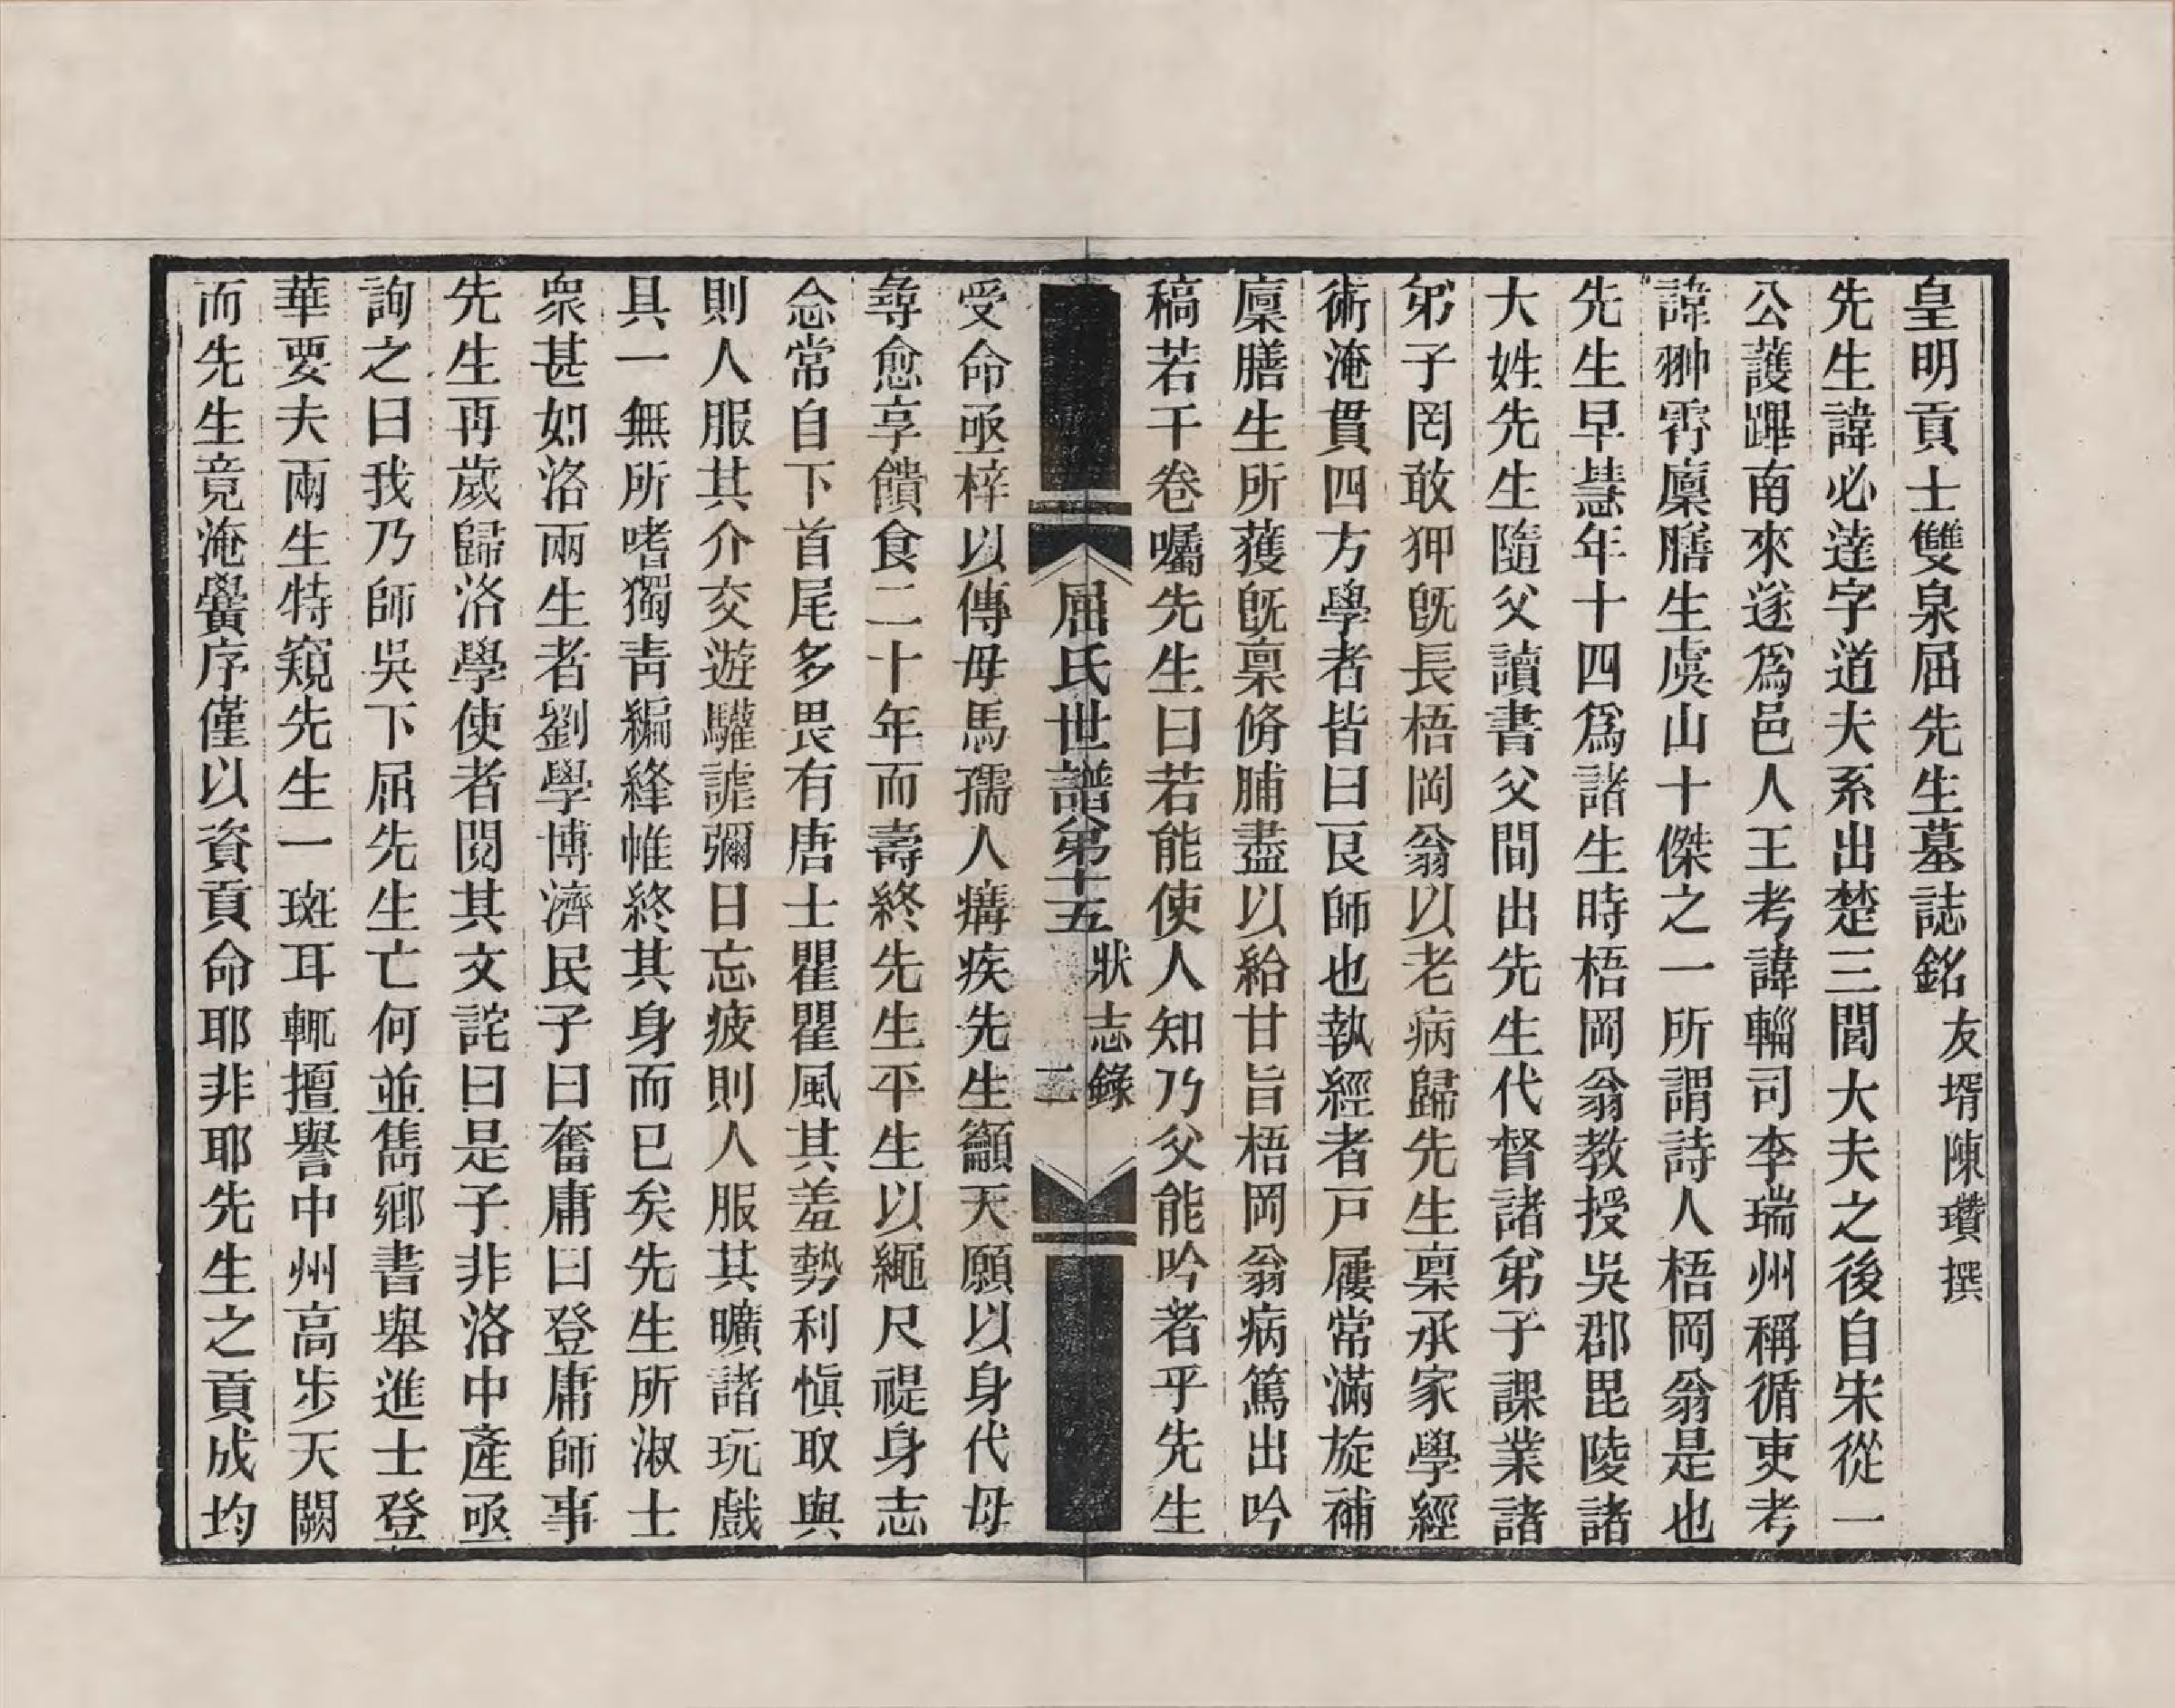 皇明貢士雙泉屈先生墓誌銘友壻陳瓚撰
先生諱必達字道夫系出楚三閭大夫之後自宋從一
公護蹕南來遂爲邑人王考諱輜司李瑞州稱循吏考
諱翀霄廩膳生虞山十傑之一所謂詩人梧岡翁是也
先生早慧年十四爲諸生時梧岡翁教授吳郡毘陵諸
大姓先生隨父讀書父間出先生代督諸弟子課業諸
弟子罔敢狎旣長梧岡翁以老病歸先生稟承家學經
術淹貫四方學者皆曰良師也執經者戸屨常滿旋補
廩膳生所獲旣稟脩脯盡以給甘旨梧岡翁病篤出吟
稿若干卷囑先生曰若能使人知乃父能吟者乎先生
屈氏世譜第十五 狀志錄 二
受命亟梓以傳母馬孺人痛疾先生籲天願以身代母
尋愈享饋食二十年而壽終先生平生以繩尺禔身志
念常自下首尾多畏有唐士瞿瞿風其羞勢利愼取與
則人服其介交遊驩謔彌日忘疲則人服其曠諸玩戲
具一無所嗜獨靑編絳帷終其身而已矣先生所淑士
衆甚如洛兩生者劉學博濟民子曰奮庸曰登庸師事
先生再歲歸洛學使者閱其文詫曰是子非洛中產亟
詢之曰我乃師吳下屈先生亡何並雋鄉書舉進士登
華要夫兩生特窺先生一斑耳輒擅譽中州高步天闕
而先生竟淹黌序僅以資貢命耶非耶先生之貢成均